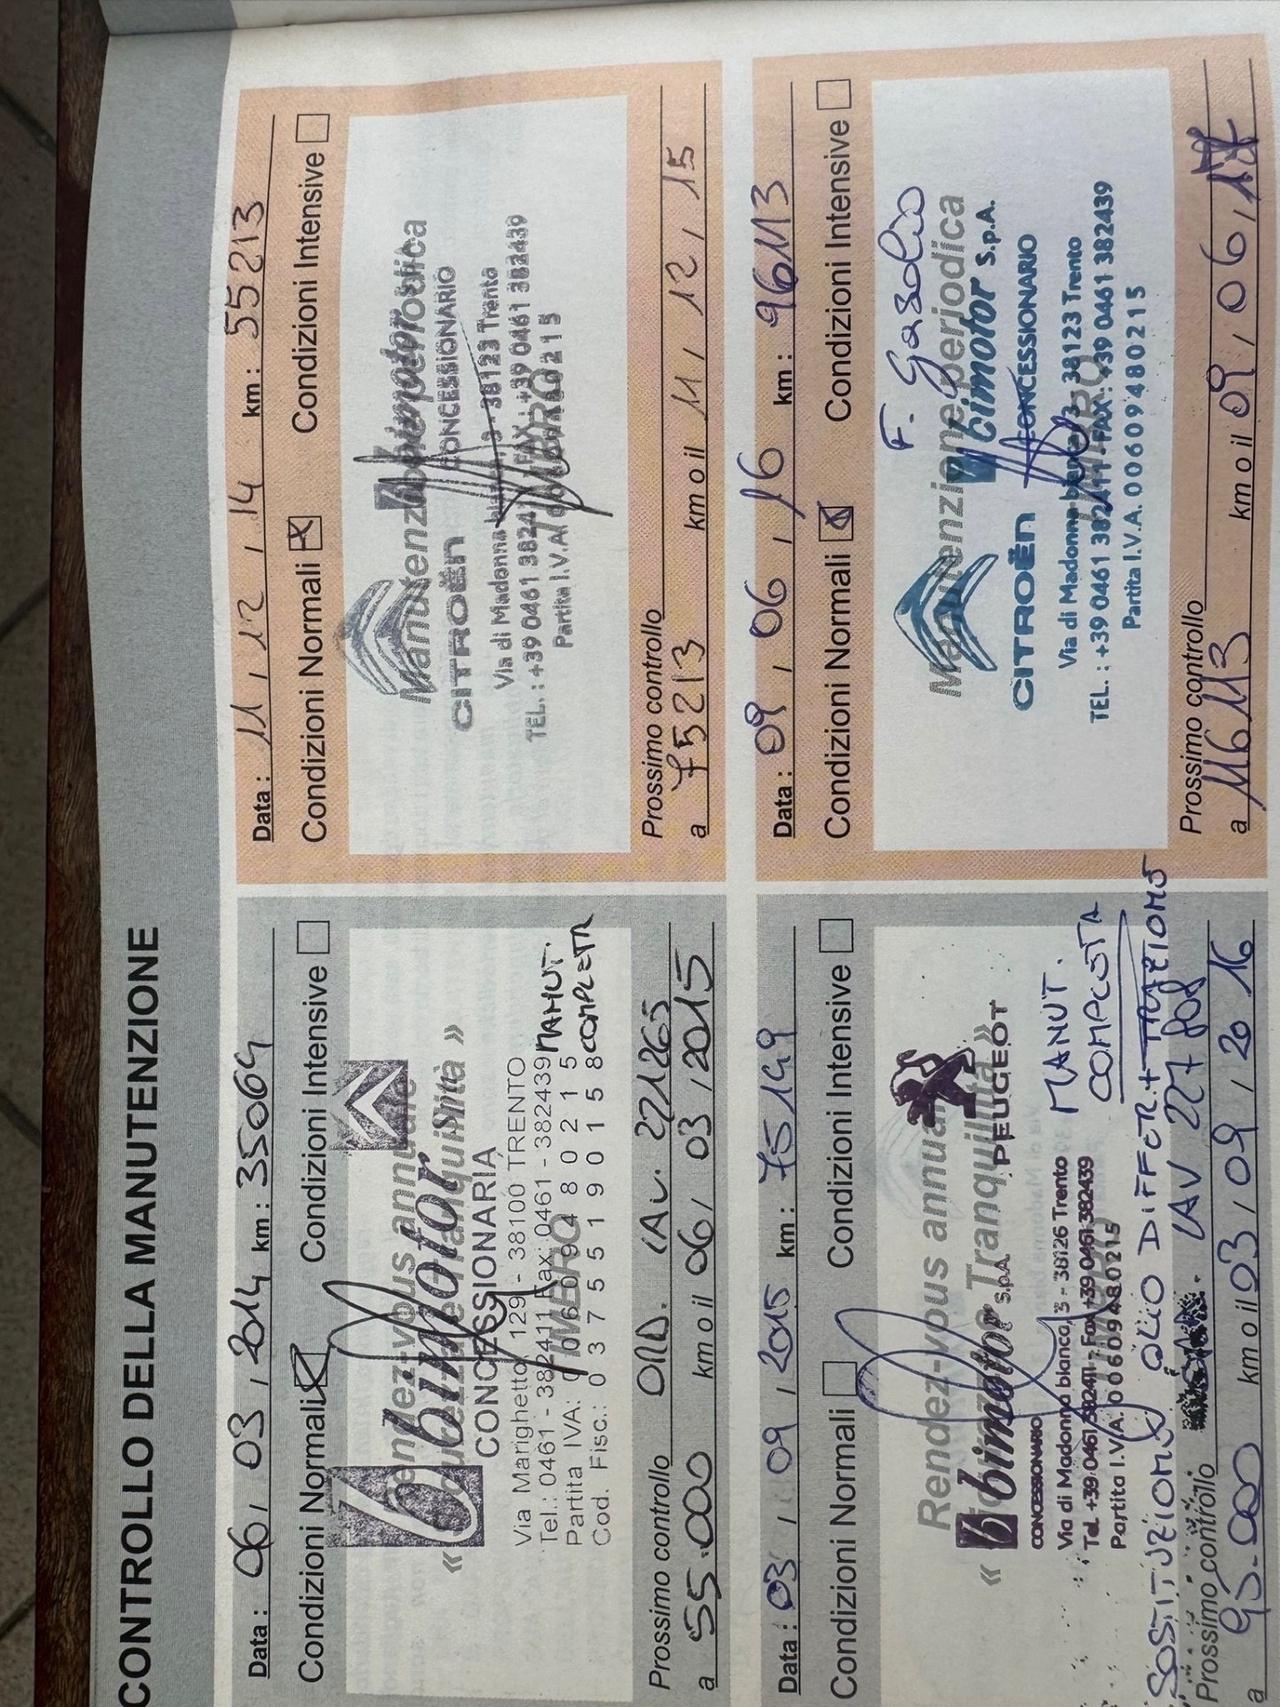 CONTROLLO DELLA MANUTENZIONE
Data : 06 , 03 , 2014 km : 35064
Condizioni Normali Condizioni Intensive
« Rendez-vous annuale
Tranquillità »
bimotor
CONCESSIONARIA
Via Marighetto, 129 - 38100 TRENTO
Tel.: 0461 - 382411 Fax: 0461 - 382439
Partita IVA: 00609480215
Cod. Fisc.: 03755190158
TIMBRO
MANUT.
COMPLETA
ORD. LAV. 221265
Prossimo controllo
a 55.000 km o il 06 , 03 , 2015
Data : 11 , 12 , 14 km : 55213
Condizioni Normali Condizioni Intensive
Manutenzione periodica
bimotor
CITROËN CONCESSIONARIO
Via di Madonna bianca, 3 - 38123 Trento
TEL. : +39 0461 382411 FAX : +39 0461 382439
Partita I.V.A. 00609480215
TIMBRO
Prossimo controllo
a 75213 km o il 11 , 12 , 15
Data : 03 , 09 , 2015 km : 75149
Condizioni Normali Condizioni Intensive
Rendez-vous annuale
« Tranquillità »
bimotor S.p.A. PEUGEOT
CONCESSIONARIO
Via di Madonna bianca, 3 - 38126 Trento
Tel. +39 0461 382411 - Fax +39 0461 382439
Partita I.V.A. 00609480215
MANUT.
COMPLETA
SOSTITUZIONE OLIO DIFFER. + TRAZIONE
LAV 227808
Prossimo controllo
a 95.000 km o il 03 , 09 , 2016
Data : 09 , 06 , 16 km : 96113
Condizioni Normali Condizioni Intensive
F. Gasolio
Manutenzione periodica
bimotor S.p.A.
CITROËN CONCESSIONARIO
Via di Madonna bianca, 3 - 38123 Trento
TEL. : +39 0461 382411 FAX : +39 0461 382439
Partita I.V.A. 00609480215
TIMBRO
Prossimo controllo
a 116113 km o il 09 , 06 , 17